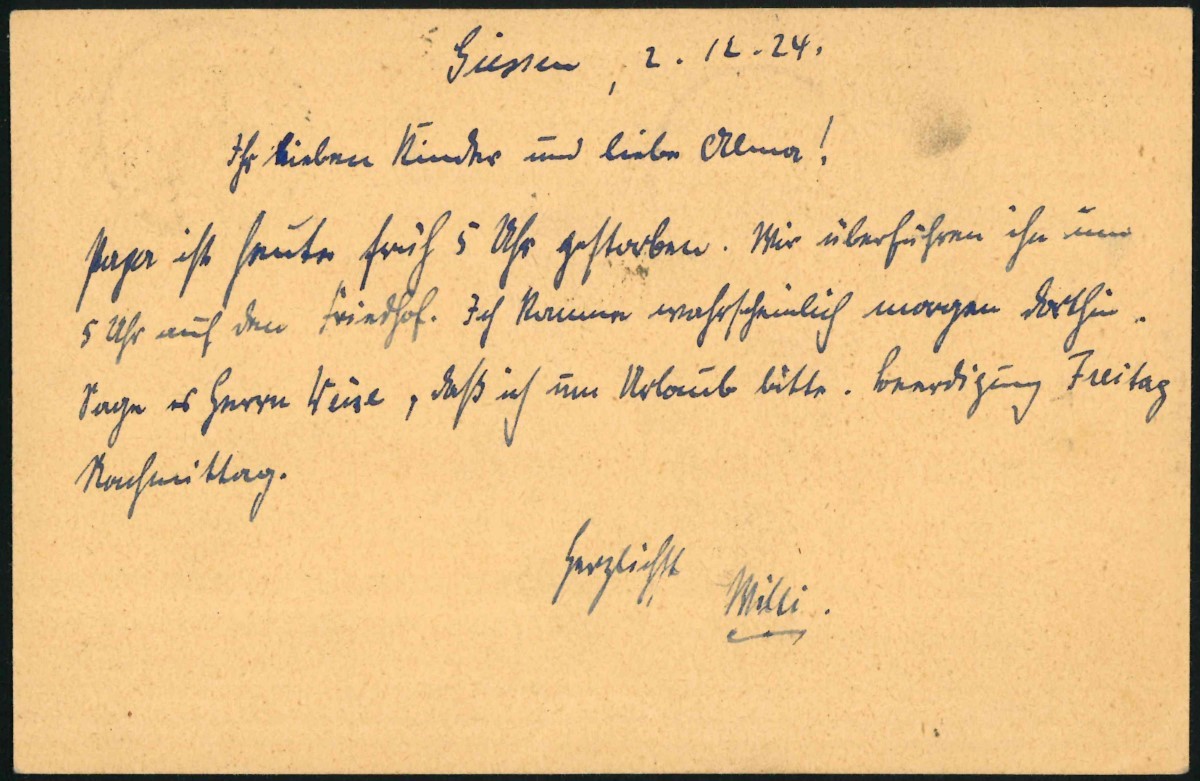 Giessen, 2.12.24.
Ihr lieben Kinder und liebe Alma!
Papa ist heute früh 5 Uhr gestorben. Wir überführen ihn um
5 Uhr auf den Friedhof. Ich komme wahrscheinlich morgen dorthin.
Sage es Herrn , daß ich um Urlaub bitte. Beerdigung Freitag
Nachmittag.
Herzlichst
Willi.